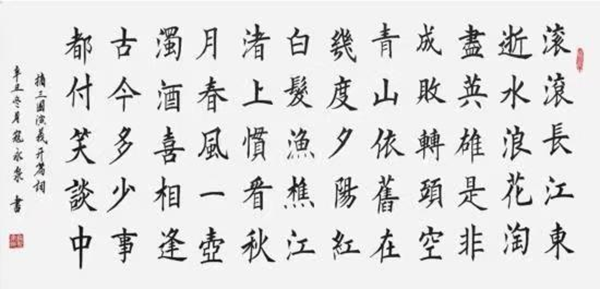 滚滾長江東
逝水浪花淘
盡英雄是非
成敗轉頭空
青山依舊在
幾度夕陽紅
白髮漁樵江
渚上慣看秋
月春風一壺
濁酒喜相逢
古今多少事
都付笑談中
摘三國演義开篇詞
辛丑冬月寇永泉書